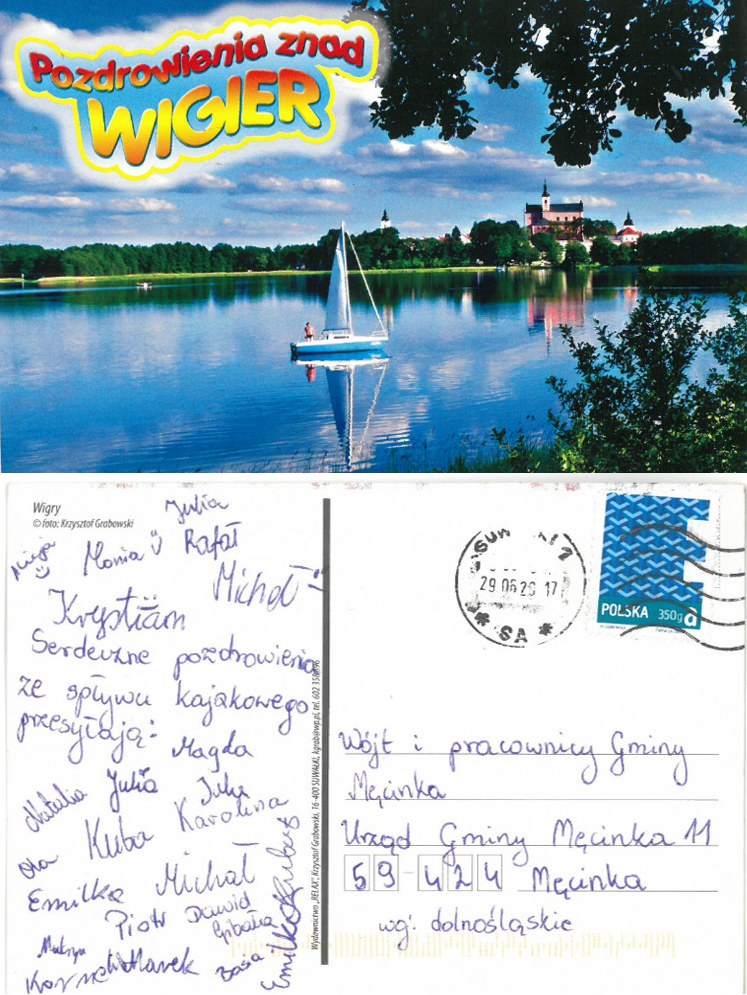 Pozdrowienia znad
WIGIER
Wigry
© foto: Krzysztof Grabowski
Julia
Monia
Rafał
Michał
Krystian
Serdeczne pozdrowienia
ze spływu kajakowego
przesyłają:
Magda
Natalia
Julia
Julia
Ola
Kuba
Karolina
Emilka
Michał
Piotr
Dawid
Marek
Basia
Emilka
Wydawnictwo „RELAX”, Krzysztof Grabowski, 16-400 SUWAŁKI, kgrab@wp.pl, tel. 602
29 06 17
SA
POLSKA 350g a
Wójt i pracownicy Gminy
Męcinka
Urząd Gminy Męcinka 11
59-424 Męcinka
dolnośląskie